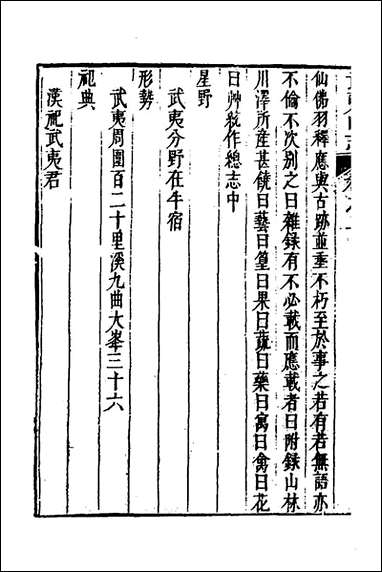 仙佛羽釋應與古跡並垂不朽至於事之若有若無語亦
不倫不次別之曰雜録有不必載而應載者曰附録山林
川澤所産甚饒曰藝曰篁曰果曰蔬曰藥曰禽曰花
曰艸統作總志中
星野
武夷分野在牛宿
形勢
武夷周圍百二十里溪九曲大峯三十六
祀典
漢祀武夷君